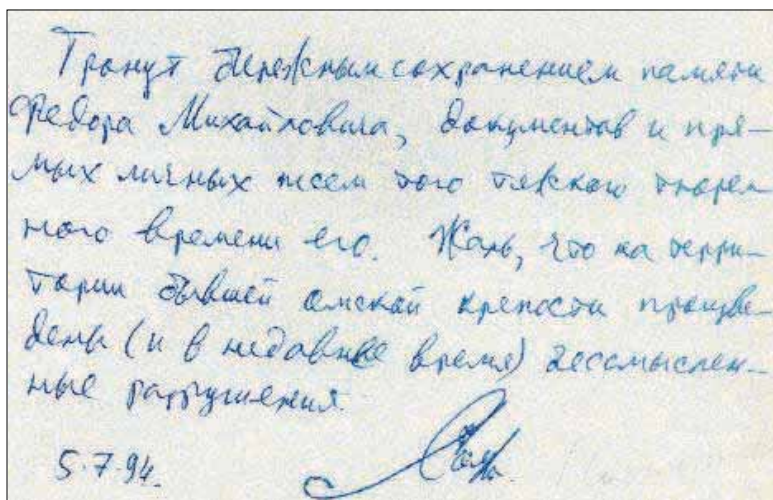 Тронут бережным сохранением памяти
Федора Михайловича, документов и пря-
мых личных писем того тяжкого тюрем-
ного времени его. Жаль, что на терри-
тории бывшей омской крепости произве-
дены (и в недавнее время) бессмыслен-
ные разрушения.
5.7.94.